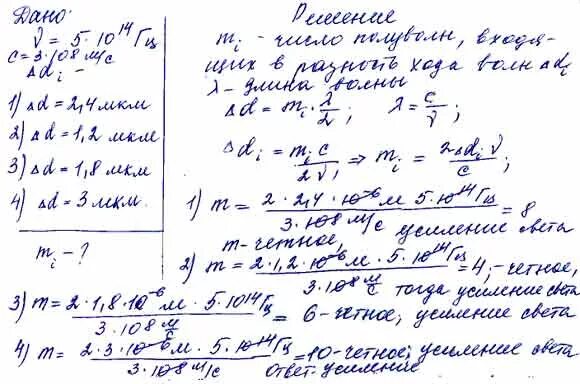 Дано:
ν = 5·10¹⁴ Гц
c = 3·10⁸ м/с
Δd i –
1) Δd = 2,4 мкм
2) Δd = 1,2 мкм
3) Δd = 1,8 мкм
4) Δd = 3 мкм
m i – ?
Решение
m i – число полуволн, входя-
щих в разность хода волн Δd i
λ – длина волны
Δd = m i · λ/2; λ = c/ν;
Δd i = m i c / 2ν ⇒ m i = 2Δd i ν / c;
1) m = 2 · 2,4 · 10⁻⁶ м · 5·10¹⁴ Гц / 3·10⁸ м/с = 8
m – четное, усиление света
2) m = 2·1,2·10⁻⁶ м · 5·10¹⁴ Гц / 3·10⁸ м/с = 4; – четное,
тогда усиление света
3) m = 2·1,8·10⁻⁶ м · 5·10¹⁴ Гц / 3·10⁸ м/с = 6 – четное; усиление света
4) m = 2·3·10⁻⁶ м · 5·10¹⁴ Гц / 3·10⁸ м/с = 10 – четное; усиление света
Ответ: усиление